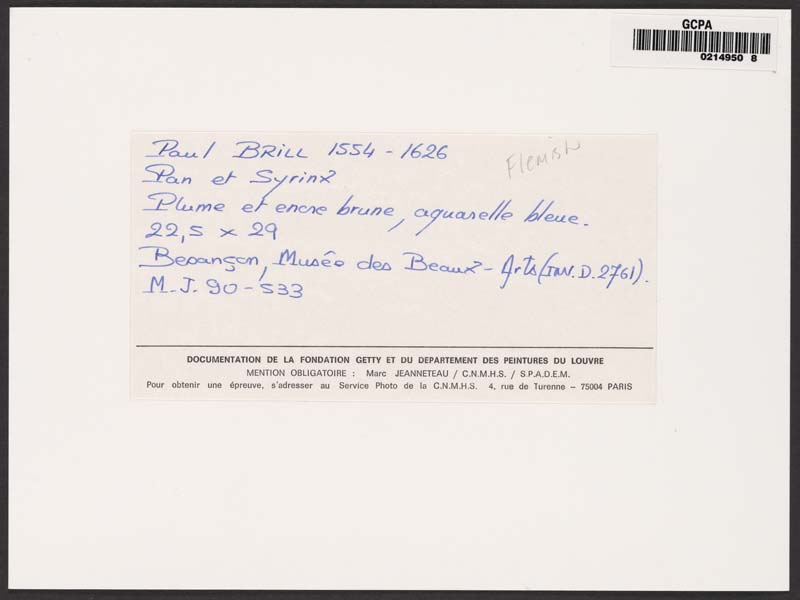 GCPA
0214950 8
Paul BRILL 1554 - 1626
Flemish
Pan et Syrinx
Plume et encre brune, aquarelle bleue.
22,5 x 29
Besançon, Musée des Beaux-Arts (INV. D. 2761).
M.J. 90 - 533
DOCUMENTATION DE LA FONDATION GETTY ET DU DEPARTEMENT DES PEINTURES DU LOUVRE
MENTION OBLIGATOIRE : Marc JEANNETEAU / C.N.M.H.S. / S.P.A.D.E.M.
Pour obtenir une épreuve, s'adresser au Service Photo de la C.N.M.H.S. 4, rue de Turenne – 75004 PARIS